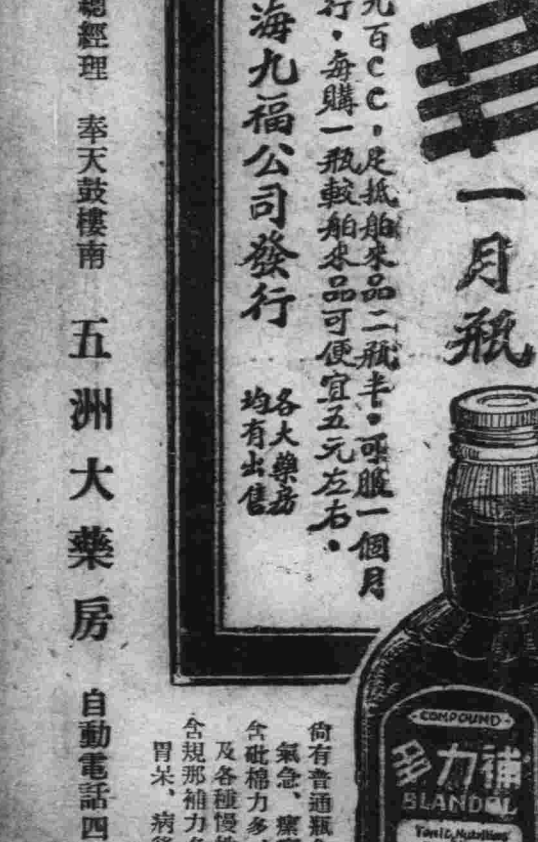 一月瓶
九百CC，足抵舶來品二瓶半。可服一個月
行。每購一瓶較舶來品可便宜五元左右。
海九福公司發行
各大藥房
均有出售
總經理　奉天鼓樓南　五洲大藥房　自動電話四
COMPOUND
補力多
BLANDOL
Tonic Nutritive
尙有普通瓶
氣急、
含砒棉力多
及各種慢性
含規那補力多
胃呆、病後